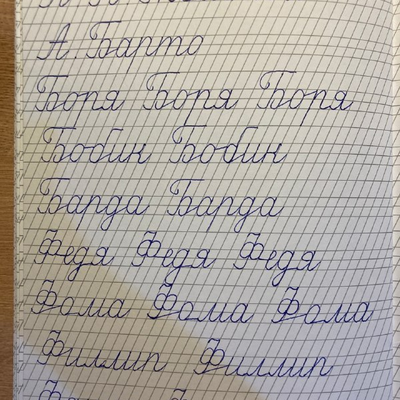 А. Барто
Боря Боря Боря
Бобик Бобик
Барда Барда
Федя Федя Федя
Фома Фома Фома
Филлип Филлип